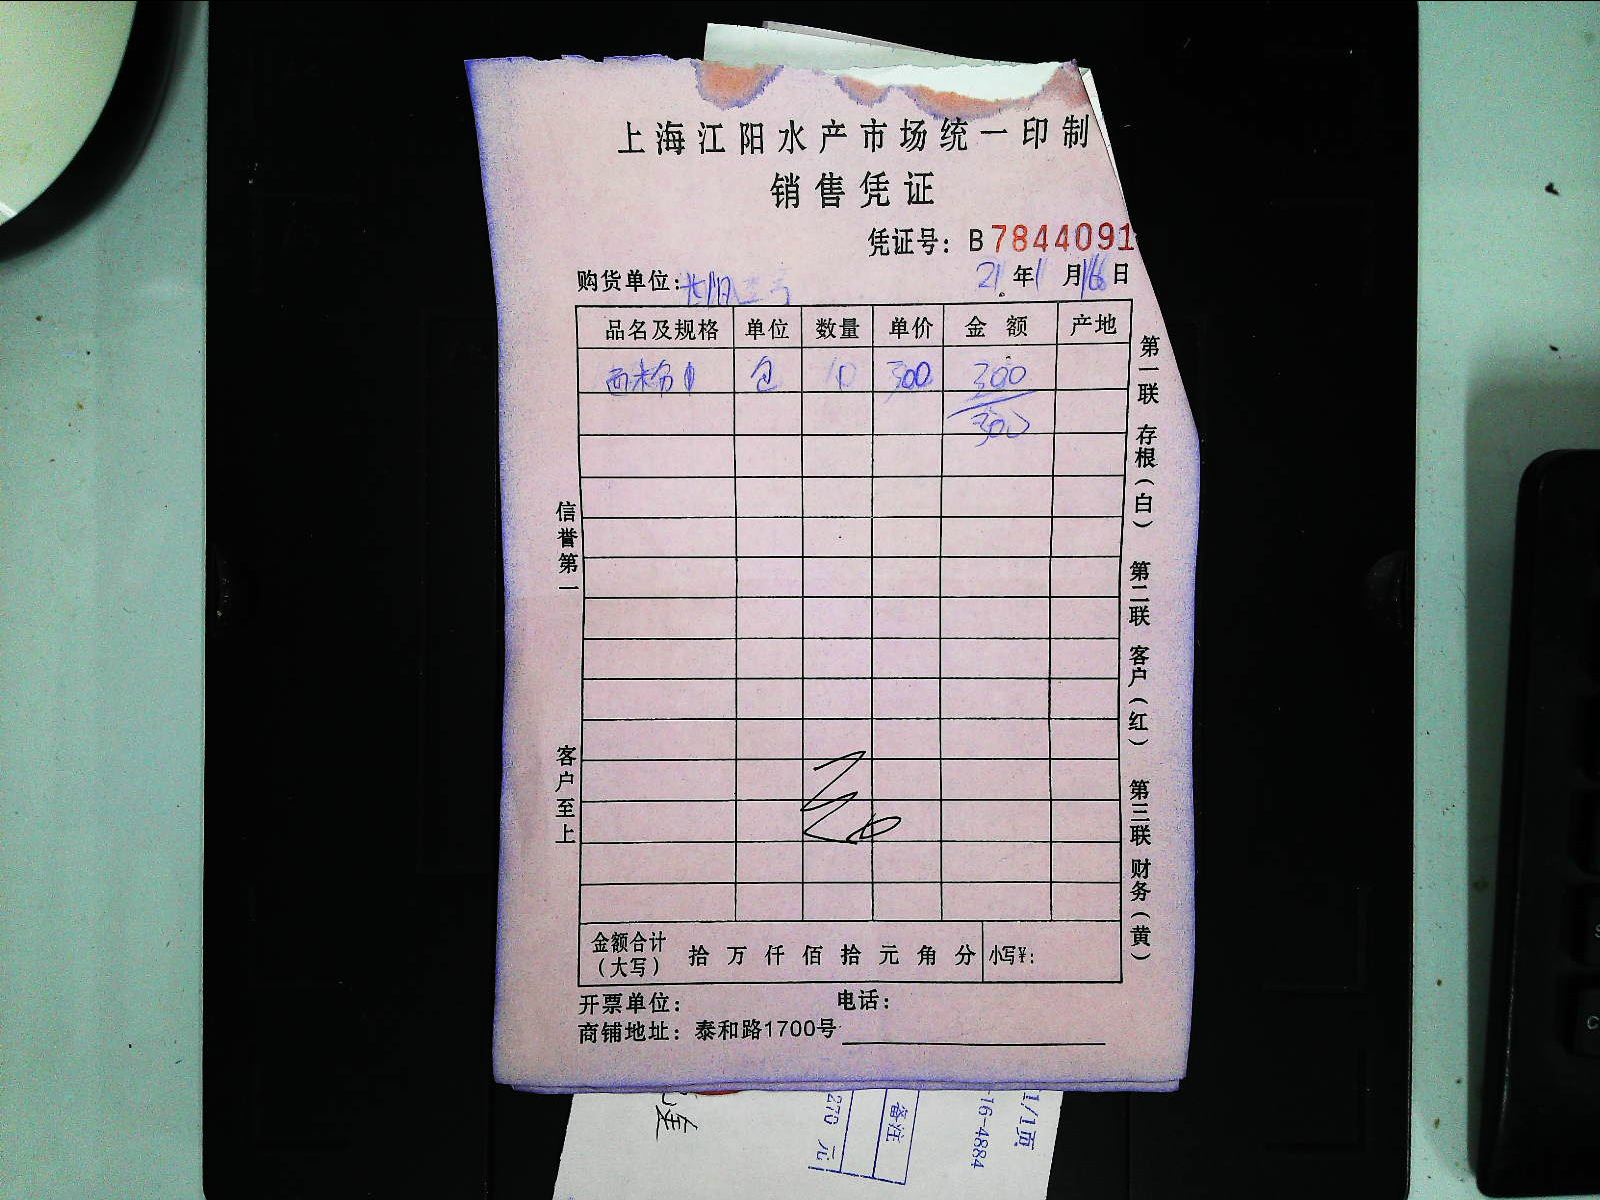 上海江阳水产市场统一印制
销售凭证
凭证号：B7844091
购货单位：
21年1月16日
品名及规格 单位 数量 单价 金额 产地
包 10 300 300
300
信誉第一
客户至上
第一联 存根（白） 第二联 客户（红） 第三联 财务（黄）
金额合计（大写） 拾 万 仟 佰 拾 元 角 分 小写¥：
开票单位： 电话：
商铺地址：泰和路1700号
270 元
备注
-16-4884
1/1页